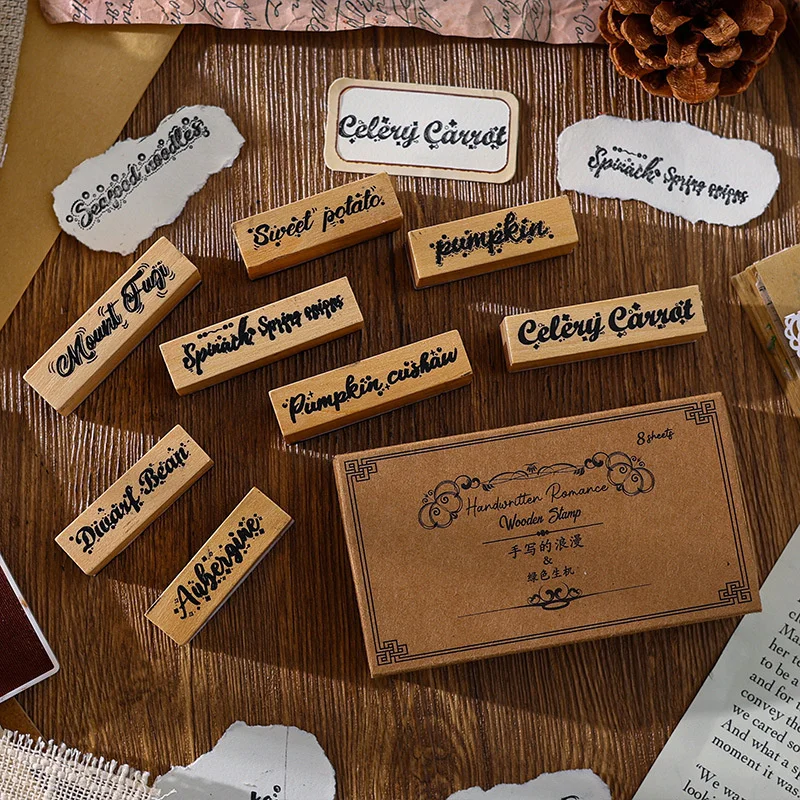 Celery Carrot
Seafood noodles
Spinach Spring onions
Sweet potato
pumpkin
Mount Fuji
Spinach Spring onions
Celery Carrot
Pumpkin cushaw
Dwarf Bean
Aubergine
8 sheets
Handwritten Romance
Wooden Stamp
手写的浪漫
&
绿色生机
her to
to be a
and for t
convey the
we cared so
And what a s
moment it was
"We wa
look